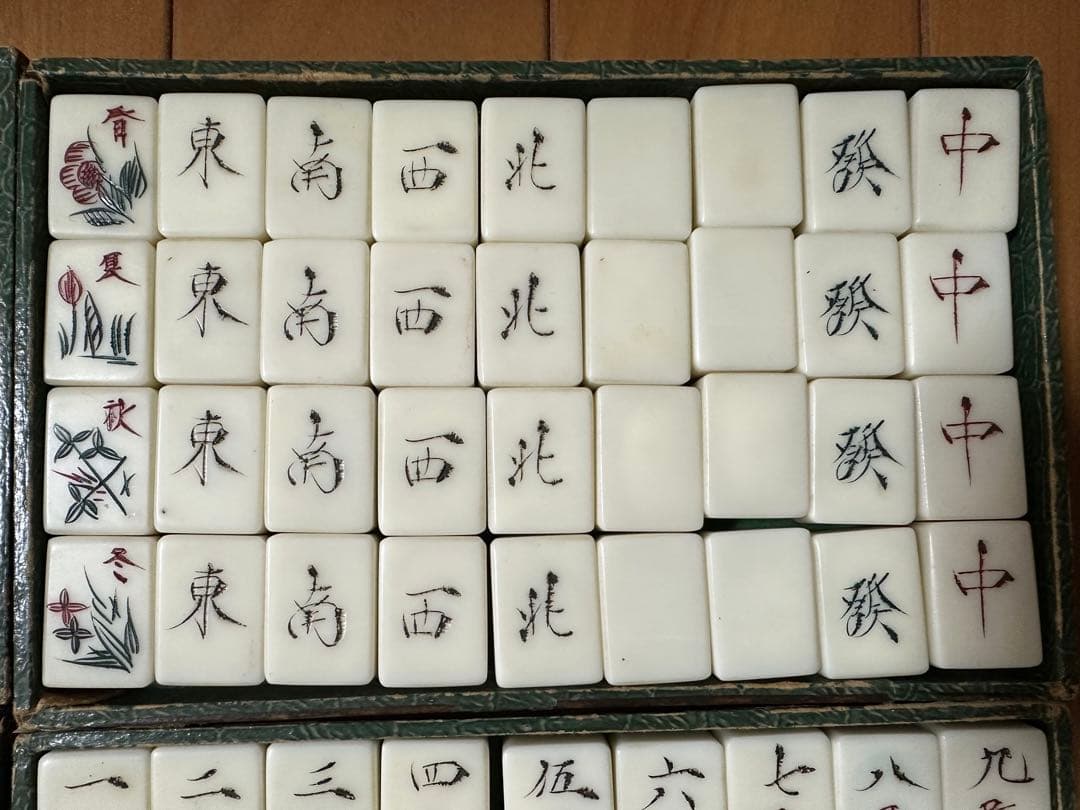 春 東 南 西 北 發 中
夏 東 南 西 北 發 中
秋 東 南 西 北 發 中
冬 東 南 西 北 發 中
一 二 三 四 伍 六 七 八 九